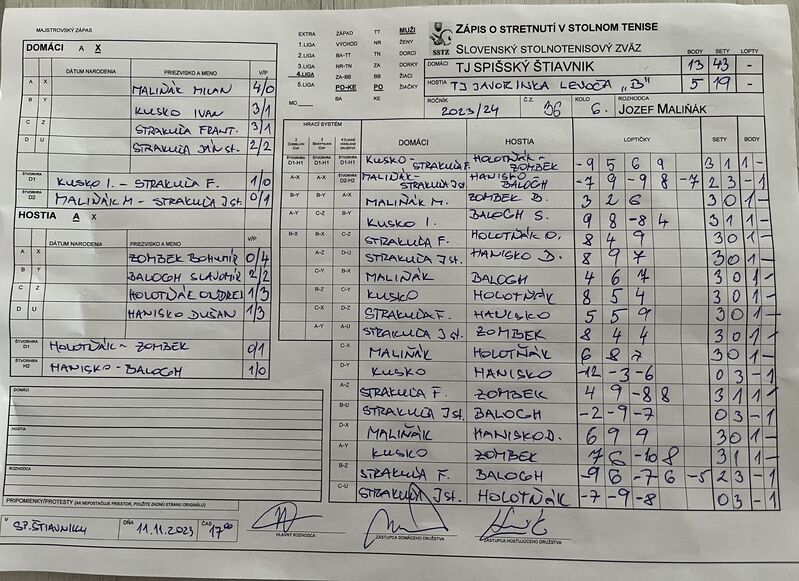 MAJSTROVSKÝ ZÁPAS
DOMÁCI A X
DÁTUM NARODENIA PRIEZVISKO A MENO V/P
A X MALIŇÁK MILAN 4/0
B Y KUSKO IVAN 3/1
C Z STRAKUĽA FRANT. 3/1
D U STRAKUĽA JÁN st. 2/2
ŠTVORHRA D1 KUSKO I. - STRAKUĽA F. 1/0
D2 MALIŇÁK M - STRAKUĽA J st 0/1
HOSTIA A X
DÁTUM NARODENIA PRIEZVISKO A MENO V/P
A X ZOMBEK BOHUMÍR 0/4
B Y BALOGH SLAVOMÍR 2/2
C Z HOLOTŇÁK ONDREJ 1/3
D U HANISKO DUŠAN 1/3
ŠTVORHRA D1 HOLOTŇÁK - ZOMBEK 0/1
ŠTVORHRA H2 HANISKO - BALOGH 1/0
DOMÁCI
HOSTIA
ROZHODCA
PRIPOMIENKY/PROTESTY (AK NEPOSTAČUJE PRIESTOR, POUŽITE ZADNÚ STRANU ORIGINÁLU)
V SP. ŠTIAVNIKU DŇA 11.11.2023 ČAS 17⁰⁰
HLAVNÝ ROZHODCA
ZÁSTUPCA DOMÁCEHO DRUŽSTVA
ZÁSTUPCA HOSŤUJÚCEHO DRUŽSTVA
EXTRA ZÁPAD TT MUŽI
1.LIGA VÝCHOD NR ŽENY
2.LIGA BA-TT TN DORCI
3.LIGA NR-TN ZA DORKY
4.LIGA ZA-BB BB ŽIACI
5.LIGA PO-KE PO ŽIAČKY
MO BA KE
SSTZ
ZÁPIS O STRETNUTÍ V STOLNOM TENISE
SLOVENSKÝ STOLNOTENISOVÝ ZVÄZ
BODY SETY LOPTY
DOMÁCI TJ SPIŠSKÝ ŠTIAVNIK 13 43 -
HOSTIA TJ JAVORINKA LEVOČA „B" 5 19 -
ROČNÍK 2023/24 Č.Z. 36 KOLO 6. ROZHODCA JOZEF MALIŇÁK
HRACÍ SYSTÉM DOMÁCI HOSTIA LOPTIČKY SETY BODY
ŠTVORHRA D1-H1 KUSKO - STRAKUĽA F. HOLOTŇÁK - ZOMBEK -9 5 6 9 3 1 1 -
A-X ŠTVORHRA D2-H2 MALIŇÁK - STRAKUĽA J st HANISKO - BALOGH -7 9 -9 8 -7 2 3 - 1
B-Y A-X MALIŇÁK M. ZOMBEK B. 3 2 6 3 0 1 -
A-Y C-Z B-Y KUSKO I. BALOGH S. 9 8 -8 4 3 1 1 -
B-X D-X C-Z STRAKUĽA F. HOLOTŇÁK O. 8 4 9 3 0 1 -
A-Z D-U STRAKUĽA J st. HANISKO D. 8 9 7 3 0 1 -
C-Y B-X MALIŇÁK BALOGH 4 6 7 3 0 1 -
B-Z KUSKO HOLOTŇÁK 8 5 4 3 0 1 -
C-X D-Z STRAKUĽA F. HANISKO 5 5 9 3 0 1 -
A-Y A-U STRAKUĽA J st. ZOMBEK 8 4 4 3 0 1 -
C-X MALIŇÁK HOLOTŇÁK 6 8 7 3 0 1 -
D-Y KUSKO HANISKO -12 -3 -6 0 3 - 1
A-Z STRAKUĽA F. ZOMBEK 4 9 -8 8 3 1 1 -
B-U STRAKUĽA J st. BALOGH -2 -9 -7 0 3 - 1
D-X MALIŇÁK HANISKO D. 6 9 9 3 0 1 -
A-Y KUSKO ZOMBEK 7 6 -10 8 3 1 1 -
B-Z STRAKUĽA F. BALOGH -9 6 -7 6 -5 2 3 - 1
C-U STRAKUĽA J st. HOLOTŇÁK -7 -9 -8 0 3 - 1